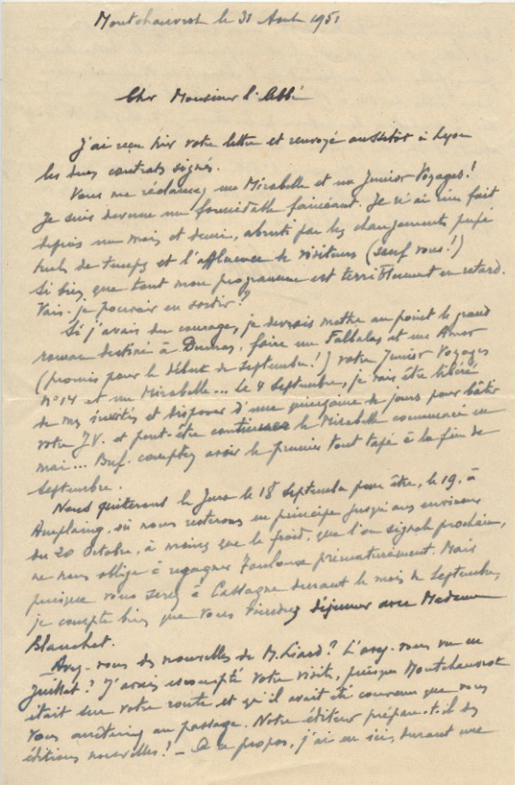 Montchauvrot le 31 Août 1951
Cher Monsieur l'Abbé
J'ai reçu hier votre lettre et renvoyé aussitôt à Lyon
les deux contrats signés.
Vous me réclamez une Mirabelle et un Junior Voyages!
Je suis devenu un formidable fainéant. Je n'ai rien fait
depuis un mois et demi, abruti par les changements perpé
tuels de temps et l'affluence de visiteurs (sauf vous!)
Si bien que tout mon programme est terriblement en retard.
Vais-je pouvoir en sortir?
Si j'avais du courage, je devrais mettre au point le grand
roman destiné à Dumas, faire un Fallalas et une Amor
(promis pour le début de Septembre!) votre Junior Voyages
n°14 et une Mirabelle... le 4 Septembre, je vais être libéré
de mes invités et disposer d'une quinzaine de jours pour bâtir
votre J.V. et peut-être continuer la Mirabelle commencée en
mai... Bref. comptez avoir le premier tout tapé à la fin de
Septembre.
Nous quitterons le Jura le 18 Septembre pour être, le 19, à
où nous resterons en principe jusqu'aux environs
du 20 Octobre, à moins que le froid, que l'on signale prochain,
ne nous oblige à regagner Toulouse prématurément. Mais
puisque vous serez à Cassagne durant le mois de Septembre,
je compte bien que vous viendrez déjeuner avec Madame
Blanchet.
_Avez-vous des nouvelles de M. Liard? L'avez-vous vu en
Juillet? J'avais escompté votre visite, puisque Montchauvrot
était sur votre route et qu'il avait été convenu que vous
vous arrêteriez au passage. Notre éditeur prépare-t-il des
éditions nouvelles! _ A ce propos, j'ai eu ici, durant une